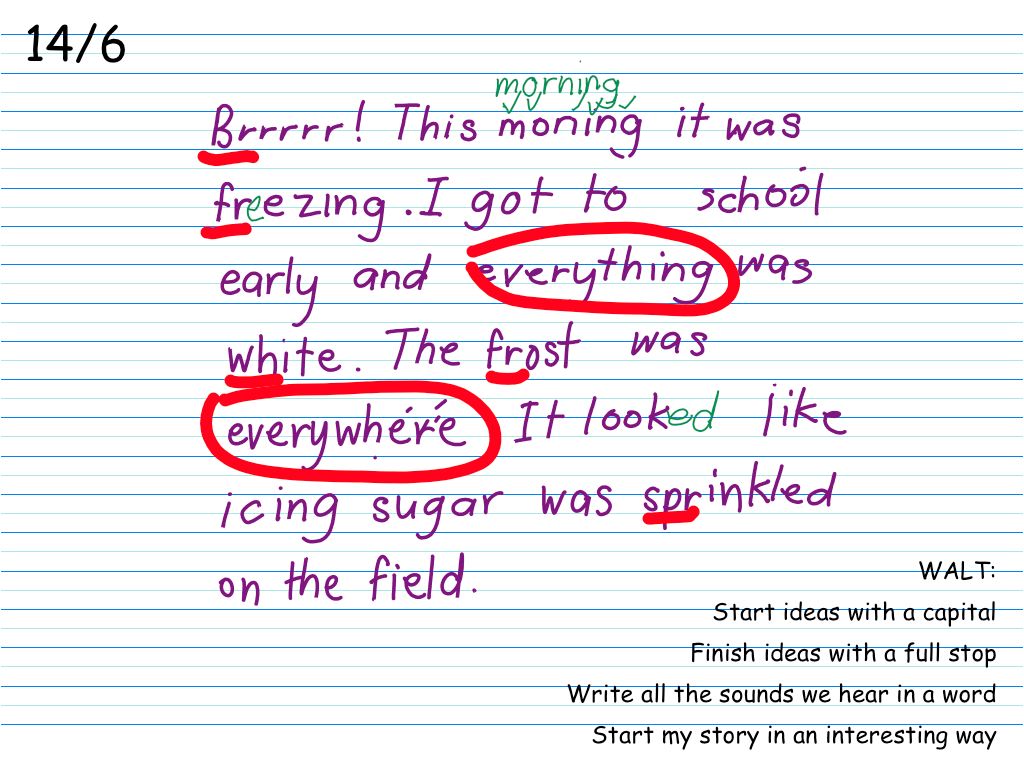 14/6
morning
Brrrrr! This moning it was
freezing. I got to school
early and everything was
white. The frost was
everywhere It looked like
icing sugar was sprinkled
on the field.
WALT:
Start ideas with a capital
Finish ideas with a full stop
Write all the sounds we hear in a word
Start my story in an interesting way